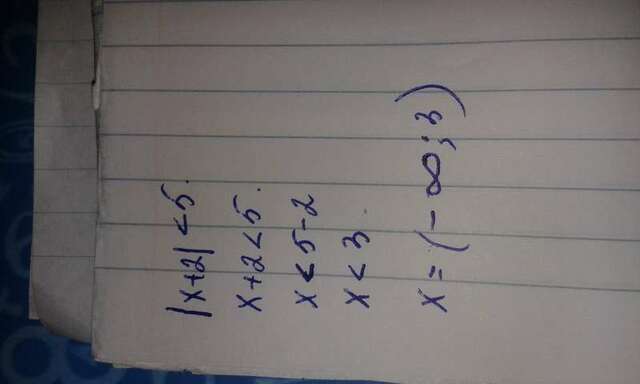 |x+2| < 5.
x+2 < 5.
x < 5-2
x < 3
x = (- ∞; 3)